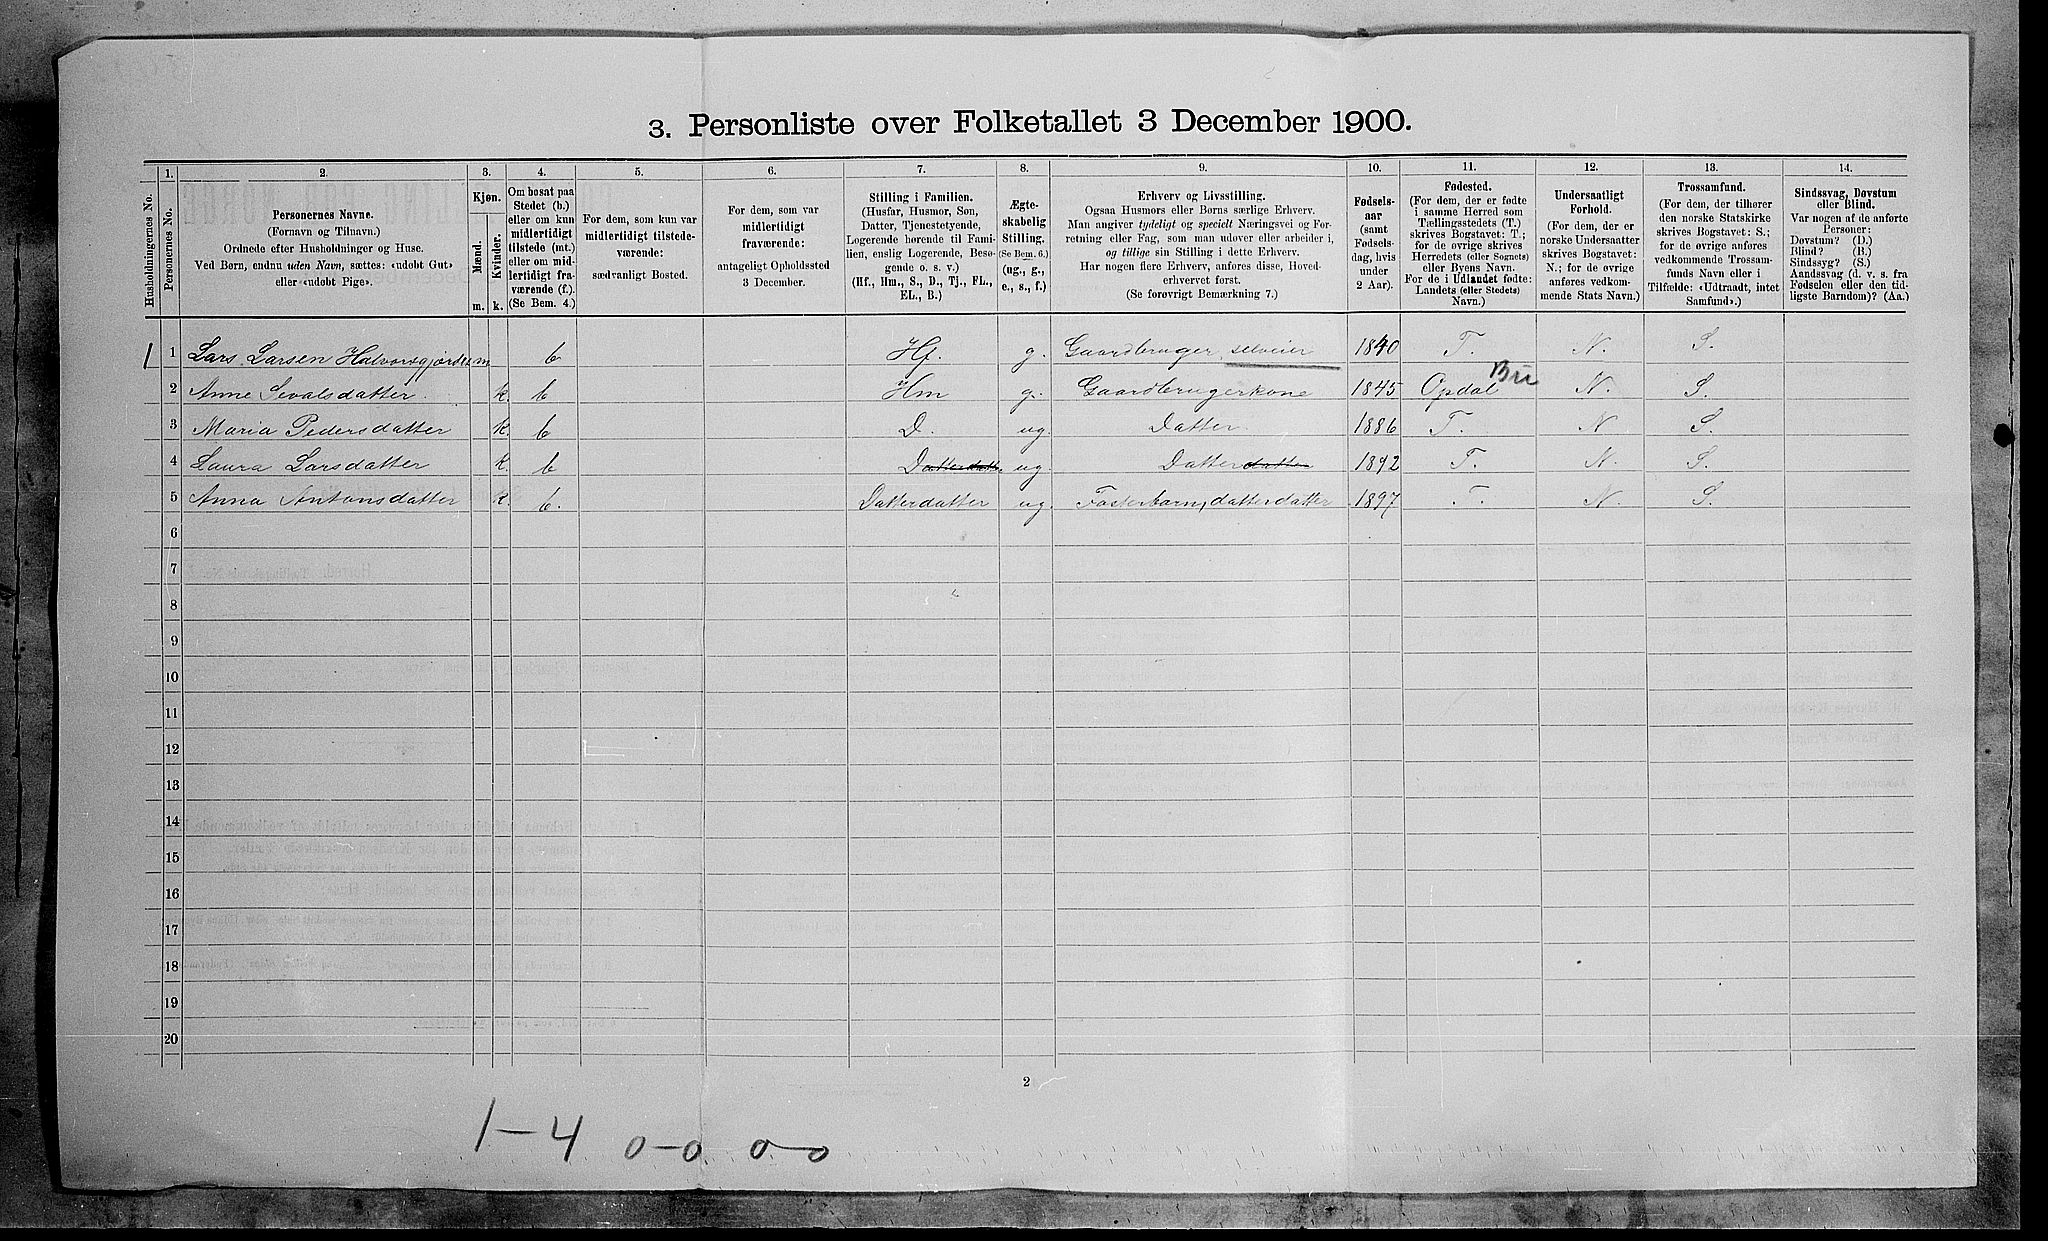 3. Personliste over Folketallet 3 December 1900.
1. 2. 3. 4. 5. 6. 7. 8. 9. 10. 11. 12. 13. 14.
Husholdningernes No.
Personernes No.
Personernes Navne.
(Fornavn og Tilnavn.)
Ordnede efter Husholdninger og Huse.
Ved Børn, endnu uden Navn, sættes: «udøbt Gut»
eller «udøbt Pige».
Kjøn.
Mænd.
Kvinder.
m. k.
Om bosat paa
Stedet (b.)
eller om kun
midlertidigt
tilstede (mt.)
eller om mid-
lertidigt fra-
værende (f.).
(Se Bem. 4.)
For dem, som kun var
midlertidigt tilstede-
værende:
sædvanligt Bosted.
For dem, som var
midlertidigt
fraværende:
antageligt Opholdssted
3 December.
Stilling i Familien.
(Husfar, Husmor, Søn,
Datter, Tjenestetyende,
Logerende hørende til Fami-
lien, enslig Logerende, Besø-
gende o. s. v.)
(Hf., Hm., S., D., Tj., FL.,
EL., B.)
Ægte-
skabelig
Stilling.
(Se Bem. 6.)
(ug., g.,
e., s., f.)
Erhverv og Livsstilling.
Ogsaa Husmors eller Børns særlige Erhverv.
Man angiver tydeligt og specielt Næringsvei og For-
retning eller Fag, som man udøver eller arbeider i,
og tillige sin Stilling i dette Erhverv.
Har nogen flere Erhverv, anføres disse, Hoved-
erhvervet først.
(Se forøvrigt Bemærkning 7.)
Fødsels-
aar
(samt
Fødsels-
dag, hvis
under
2 Aar).
Fødested.
(For dem, der er fødte
i samme Herred som
Tællingsstedets (T.)
skrives Bogstavet: T.;
for de øvrige skrives
Herredets (eller Sognets)
eller Byens Navn.
For de i Udlandet fødte:
Landets (eller Stedets)
Navn.)
Undersaatligt
Forhold.
(For dem, der er
norske Undersaatter
skrives Bogstavet:
N.; for de øvrige
anføres vedkom-
mende Stats Navn.)
Trossamfund.
(For dem, der tilhører
den norske Statskirke
skrives Bogstavet: S.;
for de øvrige anføres
vedkommende Trossam-
funds Navn eller i
Tilfælde: «Udtraadt, intet
Samfund».)
Sindssvag, Døvstum
eller Blind.
Var nogen af de anførte
Personer:
Døvstum? (D.)
Blind? (B.)
Sindssyg? (S.)
Aandssvag (d. v. s. fra
Fødselen eller den tid-
ligste Barndom)? (Aa.)
1 1 Lars Larsen Halvorsgjørdet m b Hf. g. Gaardbruger, selveier 1840 T. N. S.
2 Anne Sevalsdatter. k. b Hm g. Gaardbrugerkone 1845 Opdal N. S.
3 Maria Pedersdatter k. b D. ug. Datter 1886 T. N S.
4 Laura Larsdatter k. b Datterdatt. ug Datterdatter 1892 T. N. S.
5 Anna Antonsdatter k. b. Datterdatter ug. Fosterbarn, datterdatter 1897 T. N. S.
6
7
8
9
10
11
12
13
14
15
16
17
18
19
20
2
1-4 0-0 0-0